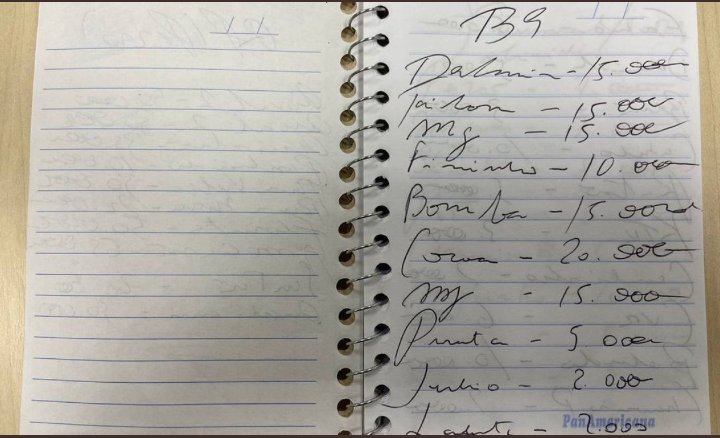 B9
Dalmin - 15.000
Tailon - 15.000
Mg - 15.000
Fininho - 10.000
Bomba - 15.000
Coroa - 20.000
Mg - 15.000
- 5.000
Julio - 2.000
PanAmericana
- 2.000